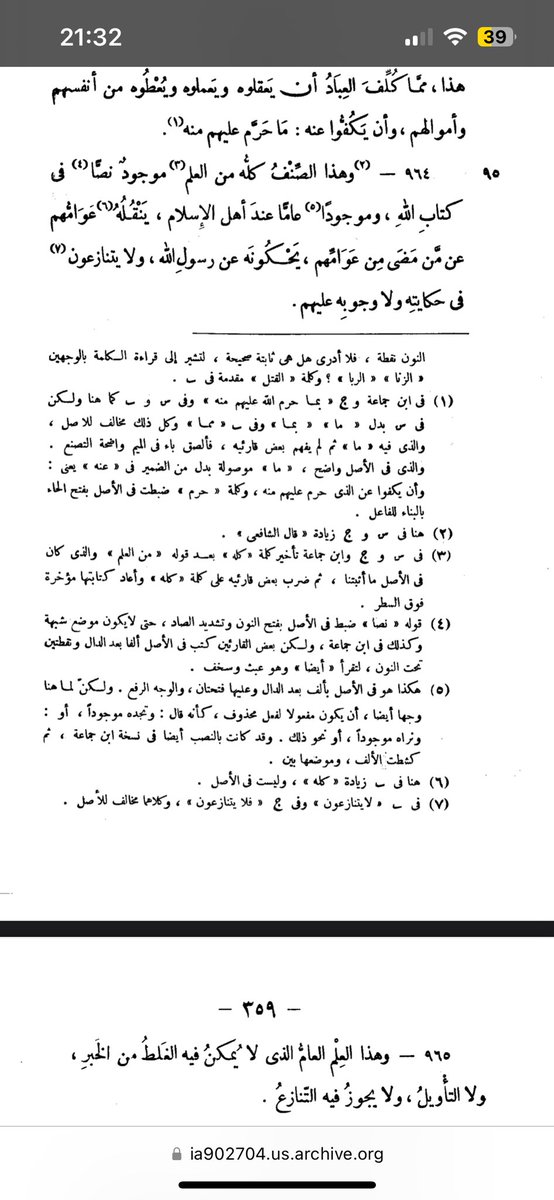 21:32
39
هذا، ممَّا كُلِّفَ العِبَادُ أن يَعقلوه ويَعملوه ويُعْطُوه من أنفسهم
وأموالهم، وأن يَكُفُّوا عنه: مَا حَرَّم عليهم منه(١).
٩٥ ٩٦٤ — (٢)وهذا الصِّنْفُ كلُّه من العلم(٣) موجودٌ نصًّا(٤) فى
كتابِ اللهِ، وموجودًا(٥) عامًّا عندَ أهلِ الإسلام، يَنْقُلُهُ(٦) عَوَامُّهم
عن مَّن مَضَى مِن عَوَامِّهم، يَحْكُونَه عن رسولِ الله، ولا يتنازعون(٧)
فى حكايتِهِ ولا وجوبِهِ عليهم.
النون نقطة، فلا أدرى هل هى ثابتة صحيحة، لتشير إلى قراءة الكلمة بالوجهين
« الزنا » « الربا » ؟ وكلمة « القتل » مقدمة فى ب.
(١) فى ابن جماعة و ج « بما حرم الله عليهم منه » وفى س و ب كما هنا ولكن
فى س بدل « ما » « بما » وفى ب « مما » وكل ذلك مخالف للاصل،
والذى فيه « ما » ثم لم يفهم بعض قارئيه، فألصق باء فى الميم واضحة التصنع.
والذى فى الأصل واضح، « ما » موصولة بدل من الضمير فى « عنه » يعنى:
وأن يكفوا عن الذى حرم عليهم منه، وكلمة « حرم » ضبطت فى الأصل بفتح الحاء
بالبناء للفاعل.
(٢) هنا فى س و ج زيادة « قال الشافعى ».
(٣) فى س و ج وابن جماعة تأخير كلمة « كله » بعد قوله « من العلم » والذى كان
فى الأصل ما أثبتنا، ثم ضرب بعض قارئيه على كلمة « كله » وأعاد كتابتها مؤخرة
فوق السطر.
(٤) قوله « نصا » ضبط فى الأصل بفتح النون وتشديد الصاد، حتى لايكون موضع شبهة
وكذلك فى ابن جماعة، ولكن بعض القارئين كتب فى الأصل ألفا بعد الدال ونقطتين
تحت النون، لتقرأ « أيضا » وهو عبث وسخف.
(٥) هكذا هو فى الأصل بألف بعد الدال وعليها فتحتان، والوجه الرفع. ولكنّ لما هنا
وجها أيضا، أن يكون مفعولا لفعل محذوف، كأنه قال: وتجده موجوداً، أو:
وتراه موجوداً، أو نحو ذلك. وقد كانت بالنصب أيضا فى نسخة ابن جماعة، ثم
كشطت الألف، وموضعها بين.
(٦) هنا فى ب زيادة « كله »، وليست فى الأصل.
(٧) فى ب « لايتنازعون » وفى ج « فلا يتنازعون »، وكلاهما مخالف للأصل.
— ٣٥٩ —
٩٦٥ — وهذا العِلْم العامُّ الذى لا يُمكنُ فيه الغلطُ من الخبرِ،
ولا التأْويلُ، ولا يجوزُ فيه التَّنازعُ.
ia902704.us.archive.org